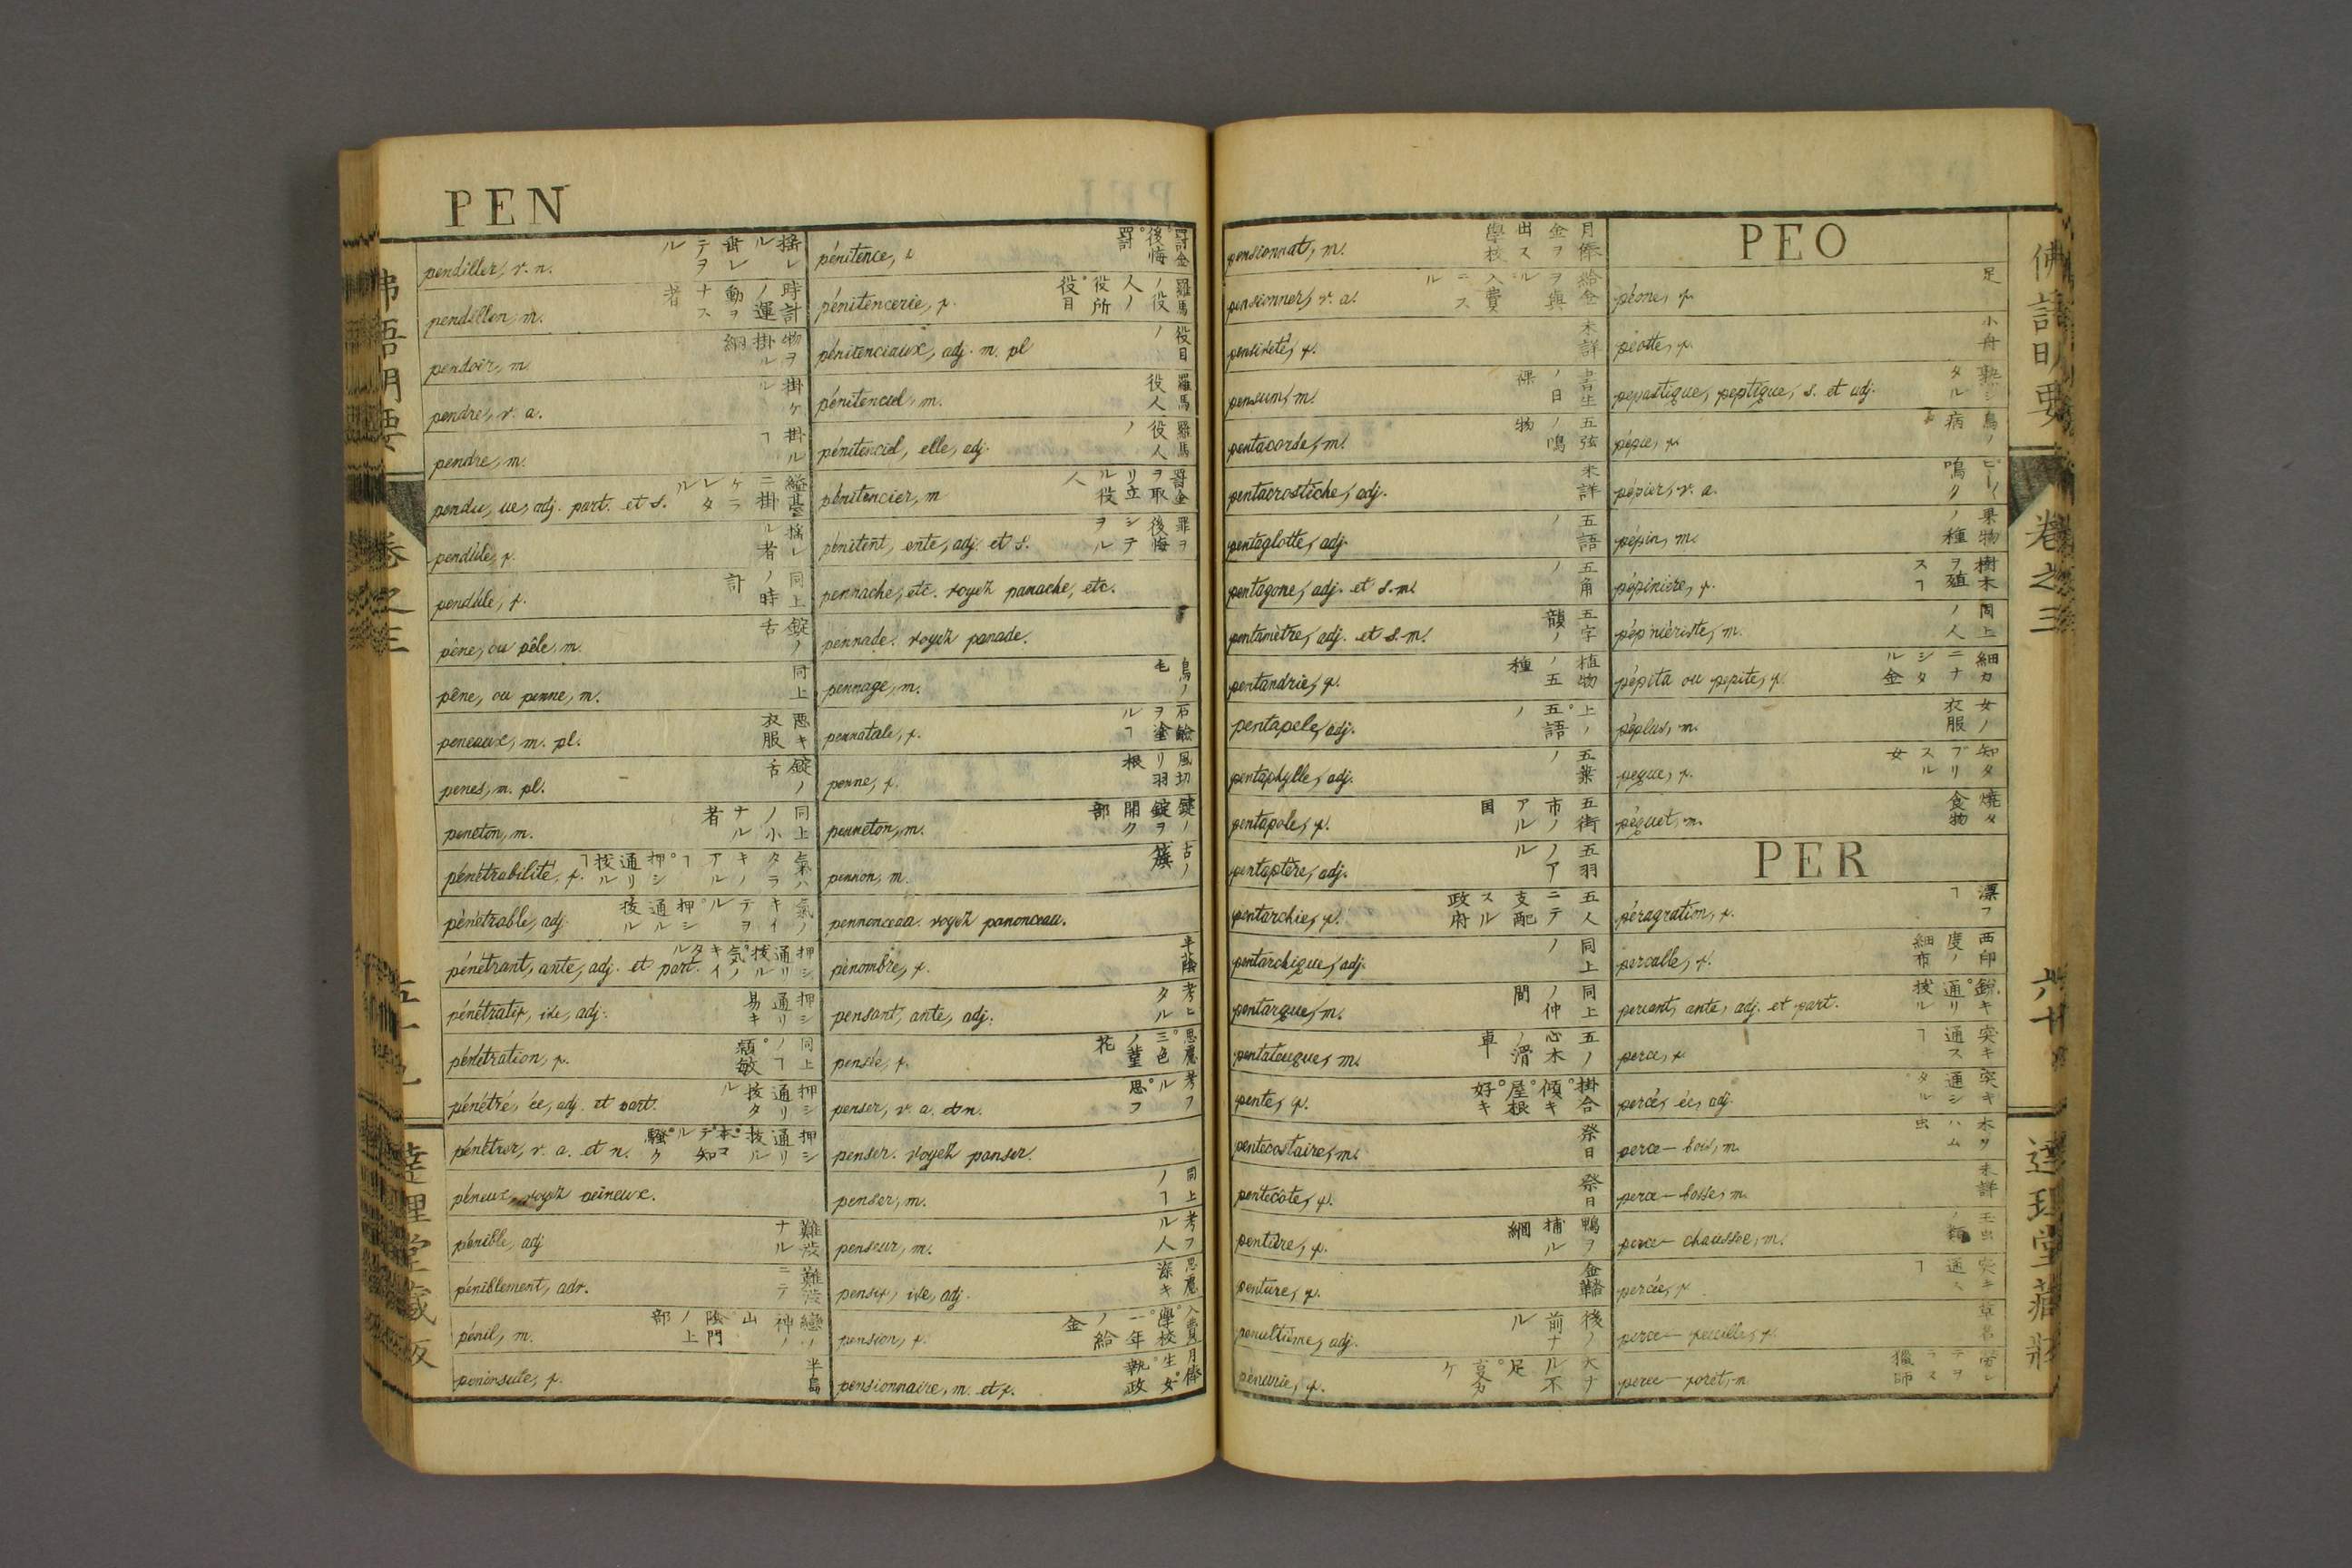 PEN
pendiller, v. n. 揺レル 垂レテヲル
pendillon, m. 時計ノ運動ヲナス者
pendoir, m. 物ヲ掛ル綱
pendre, v. a. 掛ケル
pendre, m. 掛ルヿ
pendu, ue, adj. part. et s. 縊臺ニ掛ケラレタル
pendule, f. 揺レル者
pendule, f. 同上ノ時計
pène, ou pêle, m. 錠ノ舌
pêne, ou penne, m. 同上
peneaux, m. pl. 悪キ衣服
penes, m. pl. 錠ノ舌
peneton, m. 同上ノ小ナル者
pénétrabilité, f.
pénétrable, adj.
pénétrant, ante, adj. et part.
pénétratif, ive, adj. 押シ通リ易キ
pénétration, f. 同上ノヿ。頴敏
pénétré, ée, adj. et part. 押シ通リ抜タル
pénétrer, v. a. et n.
péneux, voyez peineux.
pénible, adj. 難澁ナル
péniblement, adv. 難澁ニテ
pénil, m.
péninsule, f. 半島
pénitence, f. 罰金。後悔。罰
pénitencerie, f. 羅馬ノ役人ノ役所。役目
pénitenciaux, adj. m. pl 役目ノ
pénitenciel, m. 羅馬役人
pénitenciel, elle, adj. 羅馬役人ノ
pénitencier, m 罰金ヲ取リ立ル役人
pénitent, ente, adj. et s. 罪ヲ後悔シテヲル
pennache, etc. voyez panache, etc.
pennade. voyez panade.
pennage, m. 鳥ノ毛
pennatule, f.
penne, f. 風切リ羽根
penneton, m. 鍵ノ錠ヲ開ク部
pennon, m. 古ノ簱
pennonceau. voyez panonceau.
pénombre, f. 半陰
pensant, ante, adj. 考ヒタル
pensée, f. 思慮。三色ノ菫花
penser, v. a. et n. 考フル。思フ
penser. voyez panser.
penser, m. 同上ノヿ
penseur, m. 考フル人
pensif, ive, adj. 思慮深キ
pension, f. 入費。學校。一年ノ給金
pensionnaire, m. et f.
pensionnat, m. 月俸金ヲ出ス學校
pensionner, v. a.
pensiveté, f. 未詳
pensum, m. 書生ノ日課
pentacorde, m. 五弦ノ鳴物
pentacrostiche, adj. 未詳
pentaglotte, adj. 五語ノ
pentagone, adj. et s. m. 五角ノ
pentamètre, adj. et s. m. 五字韻ノ
pentandrie, f. 植物ノ五種
pentapele, adj. 上ノ。五語ノ
pentaphylle, adj. 五葉ノ
pentapole, f. 五街市ノアル国
pentaptère, adj. 五羽ノアル
pentarchie, f. 五人ニテ支配スル政府
pentarchique, adj. 同上ノ
pentarque, m. 同上ノ仲間
pentateuque, m. 五ノ心木ノ滑車
pente, f. 掛合。傾キ。屋根。好キ
pentecostaire, m. 祭日
pentecôte, f. 祭日
pentière, f. 鴨ヲ捕ル網
penture, f.
penultième, adj. 後ノ前ナル
pénurie, f.
PEO
péone, f. 足
péotte, f. 小舟
pepastique, peptique, s. et adj. 熟シタル
pépie, f. 鳥ノ病
pépier, v. a. ピーノ鳴ク
pépin, m. 果物ノ種
pépinière, f. 樹木ヲ殖スヿ
pépiniériste, m. 同上ノ人
pépita ou pepite, f. 細カニナシタル金
péplus, m. 女ノ衣服
peque, f. 知タブリスル女
péquet, m. 焼タ食物
PER
péragration, f. 漂フヿ
percalle, f. 西印度ノ細布
percant, ante, adj. et part. 鋭キ。通リ抜ル
perce, f. 突キ通スヿ
percé, ée, adj. 突キ通シタル
perce-bois, m. 木クハム虫
perce-bosse, m. 未詳
perce-chaussée, m.
percée, f. 突キ通スヿ
perce-feuille, f. 草名
perce-foret, m.
佛語明要 卷之三 六十 達理堂藏版
佛語明要 卷之三 五十九 達理堂藏版